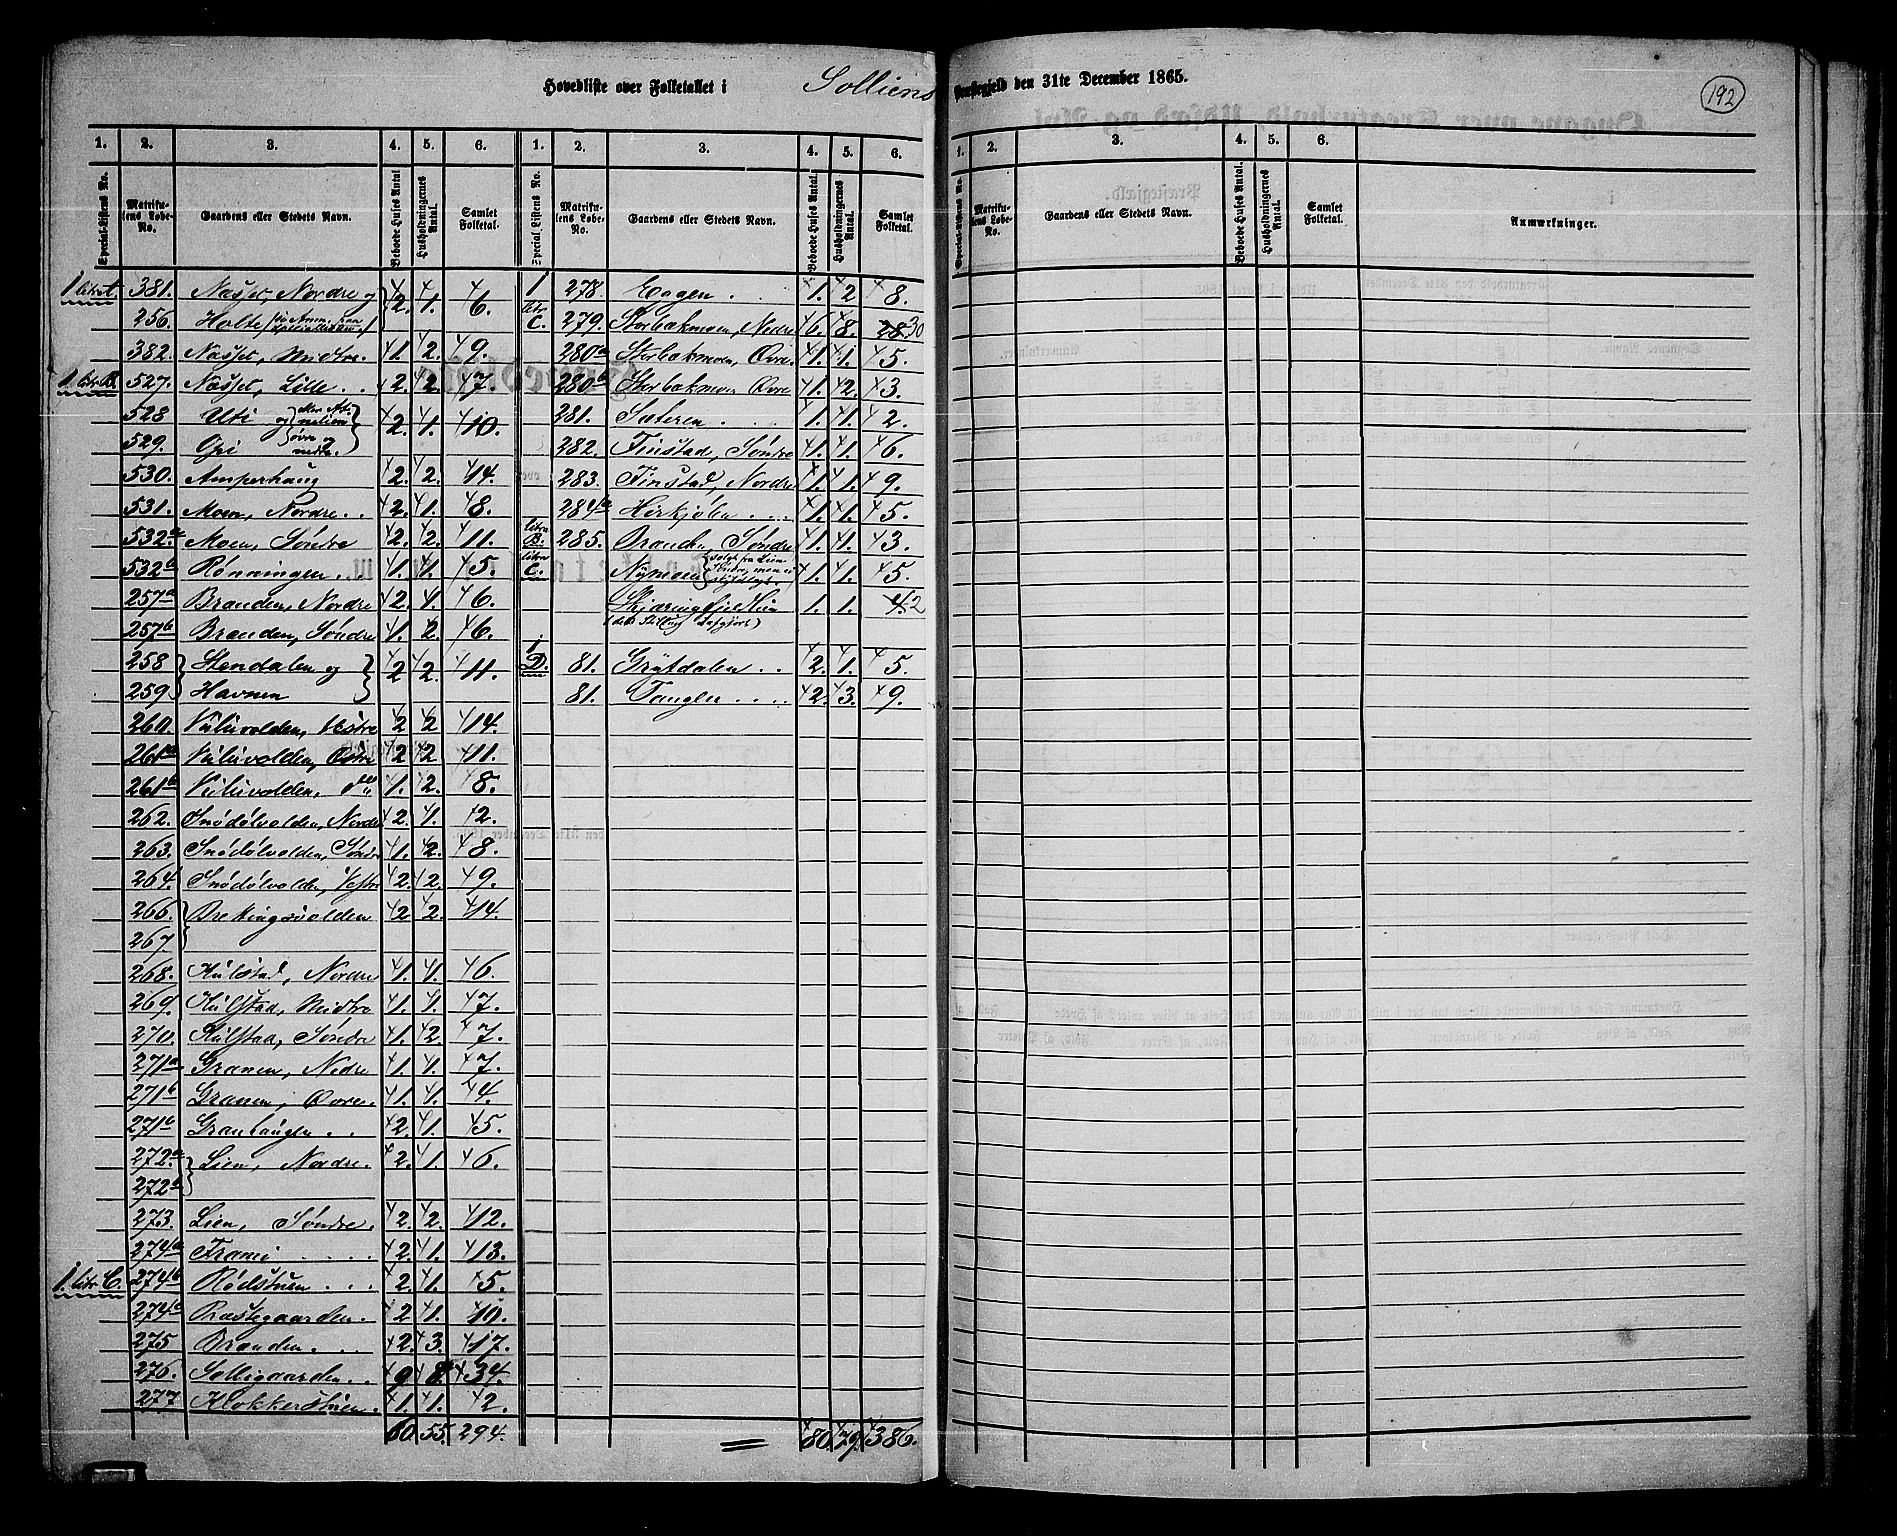 Hovedliste over Folketallet i Solliens Præstegjeld den 31te December 1865.
192
1. 2. 3. 4. 5. 6. 1. 2. 3. 4. 5. 6.
Special-Listens No. Matrikulens Løbe-No. Gaardens eller Stedets Navn. Beboede Huses Antal Husholdningernes Antal. Samlet Folketal. Special Listens No. Matrikulens Løbe-No. Gaardens eller Stedets Navn. Beboede Huses Antal. Husholdningernes Antal. Samlet Folketal.
1 litr A. 381. Næsset, Nordre og 2. 1. 6.
256. Holte
382. Næsset, Midtre. 1. 2. 9.
1 litr B. 527. Næsset, Lille . . 2. 2. 7.
528 Uti og 2. 1. 10.
529. Opi øvre og nedre.
530. Amperhaug 2. 2. 14.
531. Moen, Nordre. . 2. 1. 8.
532a Moen, Søndre 2. 2. 11.
532b Rønningen . 1. 1. 5.
257a Branden, Nordre 2. 1. 6.
257b Branden, Søndre 1. 2. 6.
258 Stendalen og 2 2. 11.
259 Havnen
260. Vuluvolden, Vestre 2 2 14.
261a Vuluvolden, Østre 2 2 11.
261b Vuluvolden, do 1. 2. 8.
262. Snødølvolden, Nordre 2. 1. 2.
263. Snødølvolden, Søndre 1. 2. 8.
264. Snødølvolden, Vestre 2. 2. 9.
266. Brekingsvolden 2 2. 14.
267.
268. Kulstad, Nordre 1. 1. 6.
269. Kulstad, Midtre 1. 1. 7.
270. Kulstad, Søndre 1. 2. 7.
271a Granen, Nedre 1. 1. 7.
271b Granen, Øvre. 1. 1. 4.
271c Granhaugen . . 2. 1. 5.
272a Lien, Nordre. 2. 1. 6.
272b
273. Lien, Søndre. 2. 2. 12.
274a Frami . . . . 2. 1. 13.
1. litr C. 274b Rødstuen . . . 2. 1. 5.
274c Præstegaarden. 2. 1. 10.
275 Branden. . . 2. 3. 17.
276. Solligaarden. . 9 8 34.
277 Klokkerstuen. 1. 1. 2.
60. 55. 294.
1 litr C. 278. Eggen . . . 1. 2 8.
279. Storbækmoen, Nedre 6. 8. 28. 30
280a Storbækmoen, Øvre. 1. 1. 5.
280b Storbækmoen Øvre 1. 2. 3.
281. Sæteren . . . 1. 1. 2.
282. Finstad, Søndre 1. 1. 6.
283. Finstad, Nordre 1. 1. 9.
284a Hirkjølen . . . 1. 1. 5.
litra B. 285. Branden, Søndre 1. 1. 3.
litra C. Nymoen 1. 1. 5.
Skjæringfjeldhien 1. 1. 2
1 D. 81. Grøtdalen . . 2. 1. 5.
81. Tanglen . . . . 2. 3. 9.
80. 79. 386.
1. 2. 3. 4. 5. 6.
Special-Listens No. Matrikulens Løbe-No. Gaardens eller Stedets Navn. Beboede Huses Antal. Husholdningernes Antal. Samlet Folketal. Anmærkninger.